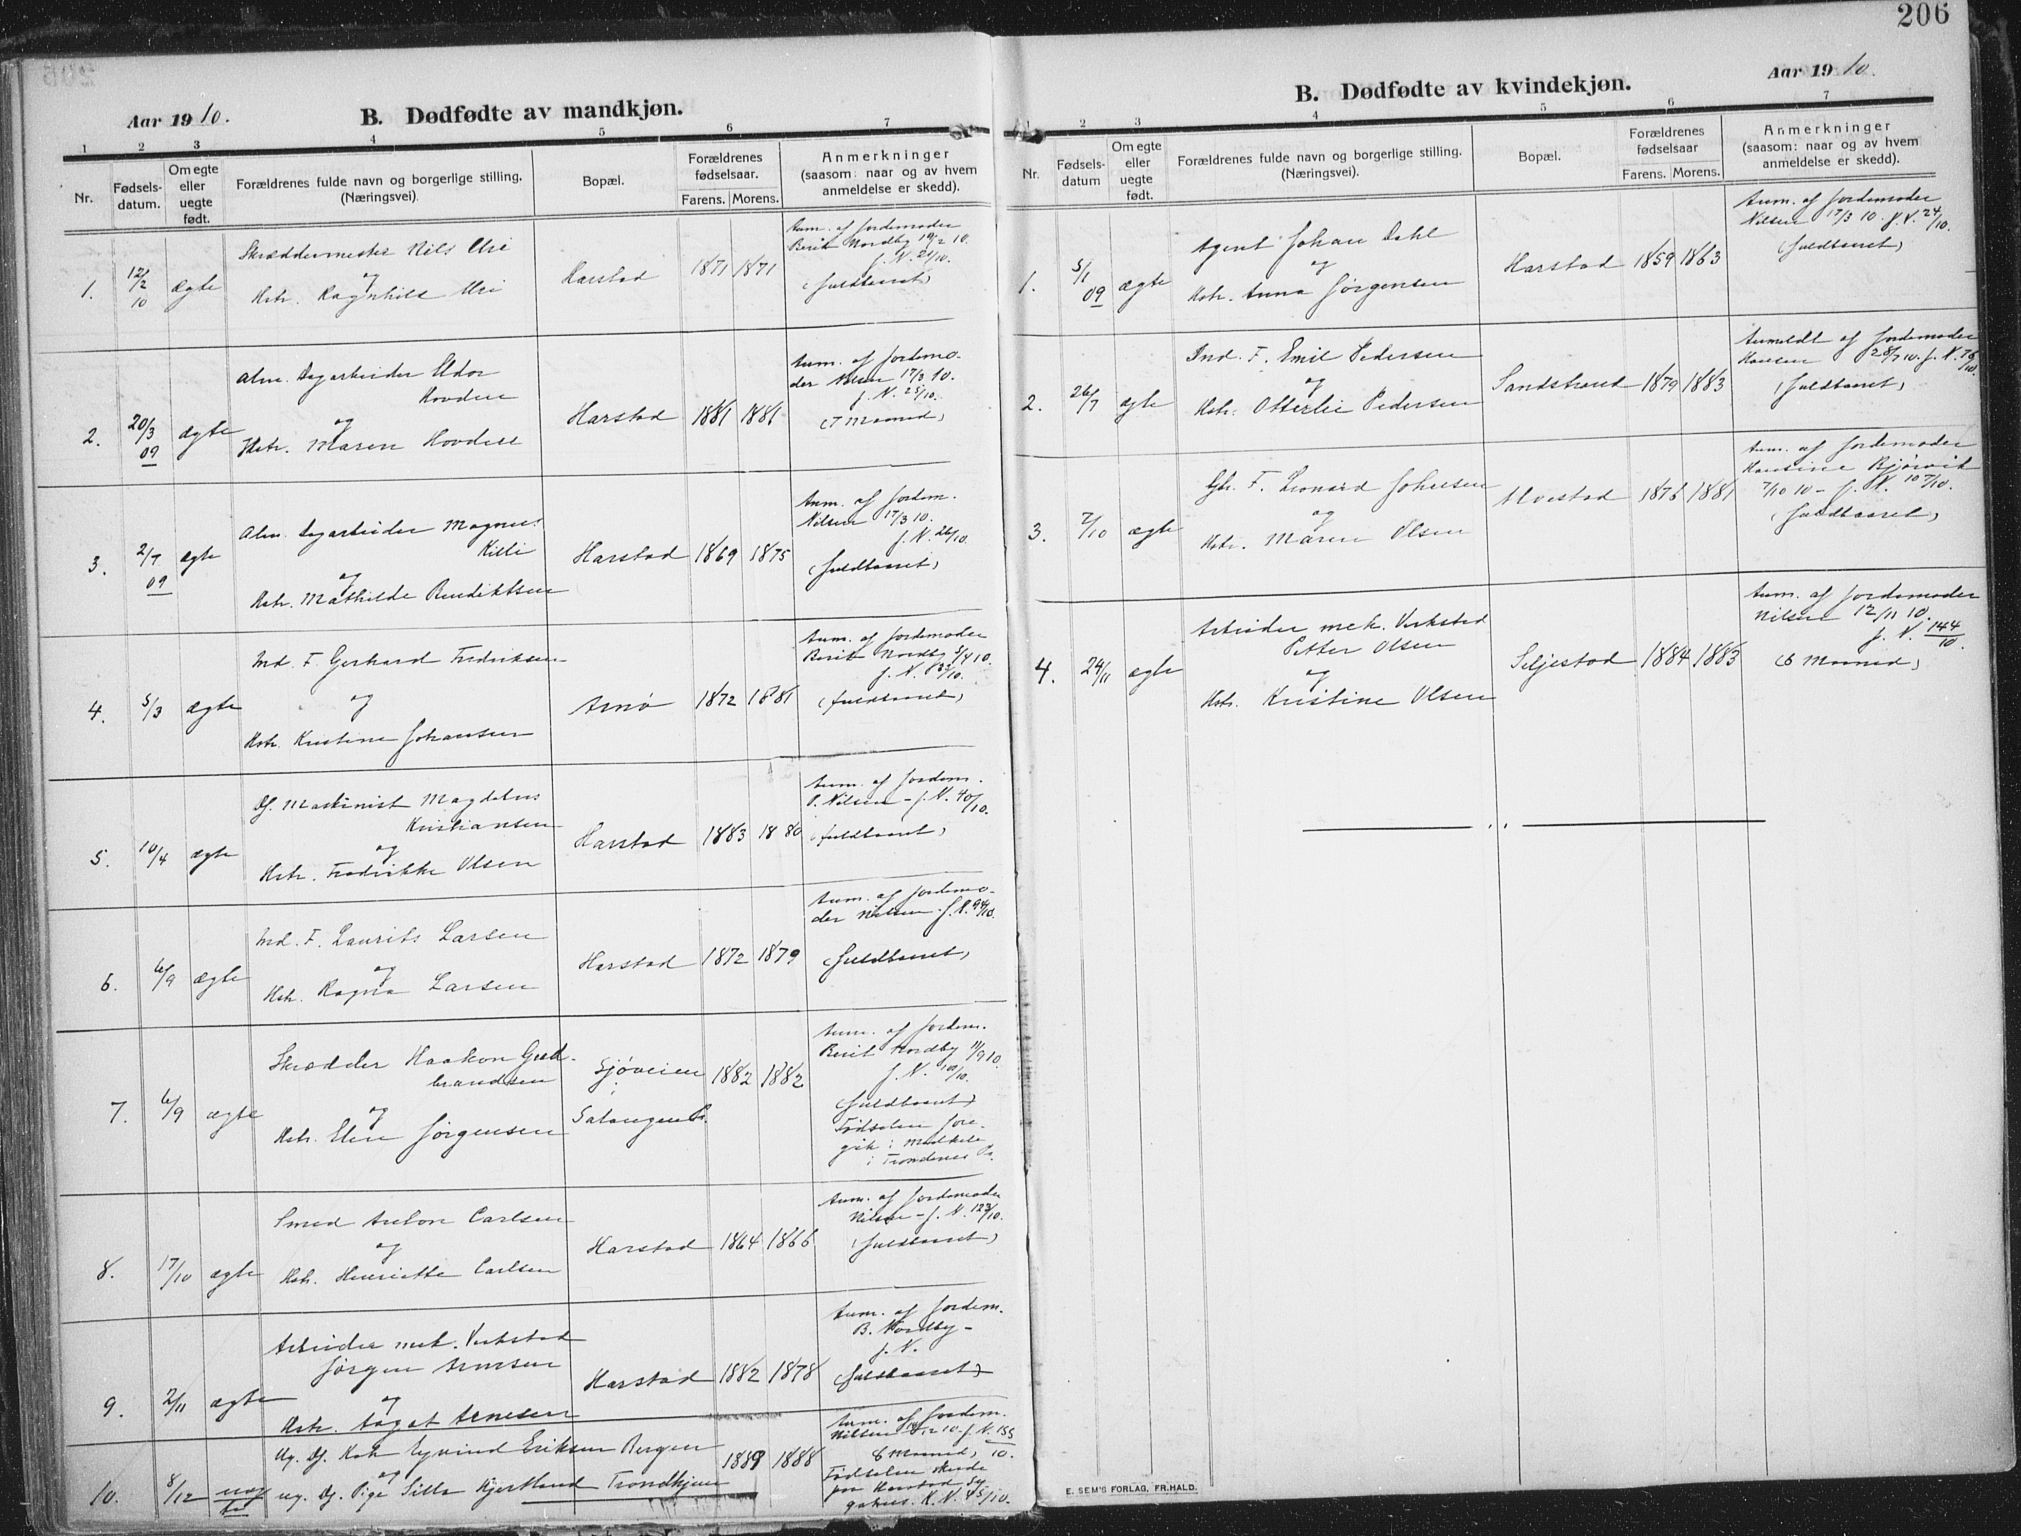 Aar 19 10.
B. Dødfødte av mandkjøn.
1 2 3 4 5 6 7
Nr.
Fødsels-
datum.
Om egte
eller
uegte
født.
Forældrenes fulde navn og borgerlige stilling.
(Næringsvei).
Bopæl.
Forældrenes
fødselsaar.
Farens. Morens.
Anmerkninger
(saasom: naar og av hvem
anmeldelse er skedd).
1. 12/2 10 ægte
Skræddermester Nils Uri
og
Hstr. Ragnhild Uri
Harstad 1871 1871
Anm. af Jordemoder
Berit Nordby 19/2 10.
(fuldbaaret)
2. 20/3 09 ægte
Alm. Dagarbeider Edor
Hovden
og
Hstr. Maren Hovden
Harstad 1881 1881
Anm. af Jordemo-
der Nilsen 17/3 10.
J. N. 25/10.
(7 Maaned)
3. 2/7 09 ægte
Alm. Dagarbeider Magnus
Killi
og
Hstr. Mathilde Bendiktsen
Harstad 1869 1875
Anm. af Jordem.
Nilsen 17/3 10.
J. N. 26/10.
(fuldbaaret)
4. 5/3 ægte
Ind. F. Gerhard Fredriksen
og
Hstr. Kristine Johansen
Arnø 1872 1881
Anm. af Jordemoder
Berit Nordby 5/4 10.
(fuldbaaret)
5. 10/4 ægte
Df. Maskinist Magdelus
Kristiansen
og
Hstr. Fredrikke Olsen
Harstad 1883 1880
Anm. af Jordem.
Nilsen - J. N. 40/10.
(fuldbaaret)
6. 6/9 ægte
Ind. F. Laurits Larsen
og
Hstr. Ragna Larsen
Harstad 1872 1879
Anm. af Jordemo-
der Nilsen. J. N. 94/10.
(fuldbaaret)
7. 6/9 ægte
Skrædder Haakon Gud-
brandsen
og
Hstr. Elen Jørgensen
Sjøveien
i
Salangen Pr.
1882 1882
Anm. af Jordem.
Berit Nordby 11/9 10.
J. N. 100/10.
(fuldbaaret)
Fødselen fore-
gik i
i Trondenes Pr.
8. 17/10 ægte
Smed Anton Carlsen
og
Hstr. Henriette Carlsen
Harstad 1864 1866
Anm. af Jordemoder
Nilsen - J. N. 123/10.
(fuldbaaret)
9. 2/11 ægte
Arbeider mek. Verksted
Jørgen Arnesen
og
Hstr. Aagot Arnesen
Harstad 1882 1878
Anm. af Jordem.
B. Nordby -
J. N.
(fuldbaaret)
10. 8/12 uæg
te
Ug. Df. Kok Eyvind Eriksen Bergen
og
ug. Df. Pige Silla Hjertland Trondhjem
1889 1888
Anm. af Jordem.
Nilsen 12 10 - J. N. 155/10.
6 Maaned,
Fødselen skede
paa Harstad Sy-
gehus. K. N. 45/10.
206
Aar 19 10.
B. Dødfødte av kvindekjøn.
1 2 3 4 5 6 7
Nr.
Fødsels-
datum
Om egte
eller
uegte
født.
Forældrenes fulde navn og borgerlige stilling.
(Næringsvei).
Bopæl.
Forældrenes
fødselsaar
Farens. Morens.
Anmerkninger
(saasom: naar og av hvem
anmeldelse er skedd).
1. 5/1 09 ægte
Agent Johan Dahl
og
Hstr. Anna Jørgensen
Harstad 1859 1863
Anm. af Jordemoder
Nilsen 17/3 10. J. N. 24/10.
(fuldbaaret)
2. 26/7 ægte
Ind. F. Emil Pedersen
og
Hstr. Otterlie Pedersen
Sandstrand 1879 1883
Anmeldt af Jordemoder
Hansen 28/7 10. J. N. 76/10.
(fuldbaaret)
3. 7/10 ægte
Gbr. F. Leonard Johnsen
og
Hstr. Maren Olsen
Movestad 1876 1881
Anm. af Jordemoder
Hansine Bjørvik
7/10 10 - J. N. 107/10.
(fuldbaaret)
4. 24/11 ægte
Arbeider mek. Verksted
Petter Olsen
og
Hstr. Kristine Olsen
Seljestad 1884 1883
Anm. af Jordemoder
Nilsen 12/11 10.
J. N. 144/10
(6 Maaned)
E. SEM'S FORLAG, FR.HALD.